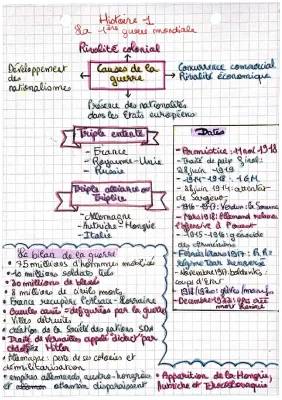 Histoire 1
La 1ère guerre mondiale
Rivalité colonial
Développement
des
nationalismes
Causes de la
guerre
Concurrence commercial
Rivalité économique
Présence des nationalités
dans les Etats européens
Triple entente
- France
- Royaume-Unie
- Russie
Triple alliance ou
Triplice
- Allemagne
- Autriche-Hongrie
- Italie
Dates
- Armistice : 11 nov 1918
- Traité de paix
28 juin 1919
- 1914-1918 : 1 GM
- 28 juin 1914 : attentat
de Sarajevo
- 1916-1917 : Verdun : la Somme
- Mars 1918 : Allemand
l'offensive à l'ouest
- 1915-1916 : génocide
des arméniens
- 1917 :
- Novembre 1917 :
coup d'Etat
Le bilan de la guerre
d'hommes mobilisés
10 millions soldats tués
20 millions de blessés
8 millions de civils morts
France récupère l'Alsace-Lorraine
Gueules cassés = défigurés par la guerre
Villes détruites
création de la Société des nations SDN
Traité de Versailles appelé "diktat" par
Hitler
Allemagne : perte de ses colonies et
démilitarisation
empires allemands, austro-hongrois
et ottoman disparaissent
Apparition de la Hongrie,
Autriche et Tchécoslovaquie